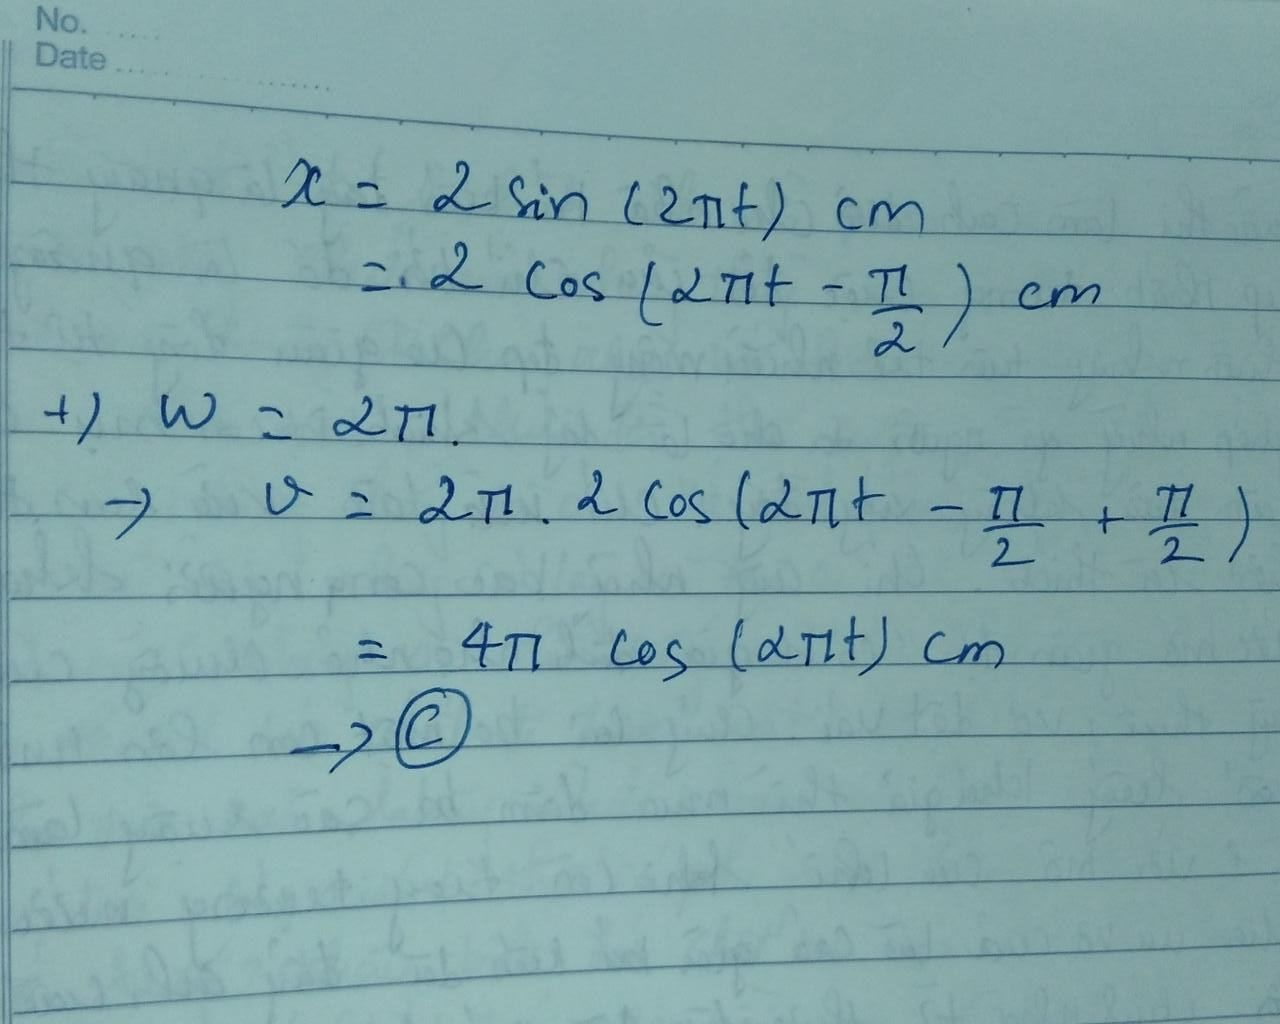 No. .....
Date ..................
x = 2 sin (2πt) cm
= 2 cos (2πt - π/2) cm
+) w = 2π.
→ v = 2π . 2 cos (2πt - π/2 + π/2)
= 4π cos (2πt) cm
→ Ⓒ